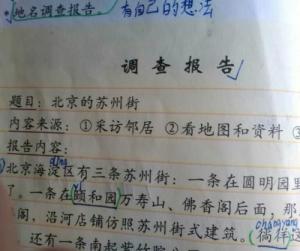 地名调查报告
有自己的想法
调查报告
题目：北京的苏州街
内容来源：①采访邻居 ②看地图和资料 ③
报告内容：
diàn
北京海淀区有三条苏州街：一条在圆明园里
了。一条在颐和园万寿山、佛香阁后面，那
阁，沿河店铺仿照苏州街式建筑。（徜徉
还有一条南起紫竹院